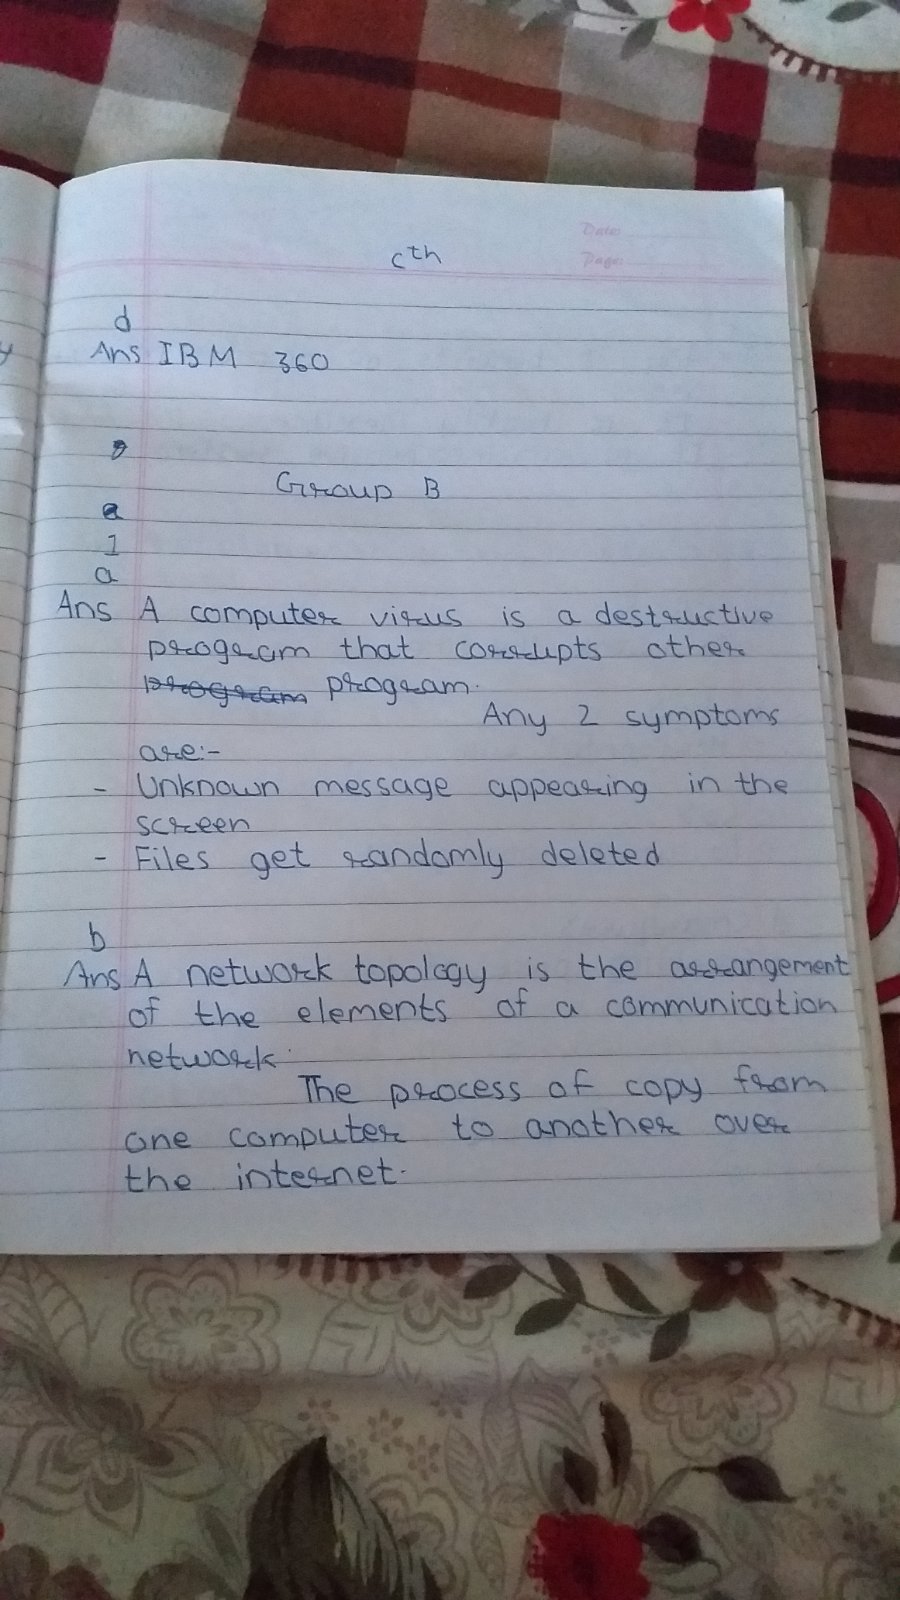 Date:
Page:
cth
d
Ans IBM 360
Group B
a
1
a
Ans A computer virus is a destructive
program that corrupts other
program program.
Any 2 symptoms
are:-
- Unknown message appearing in the
screen
- Files get randomly deleted
b
Ans A network topology is the arrangement
of the elements of a communication
network.
The process of copy from
one computer to another over
the internet.